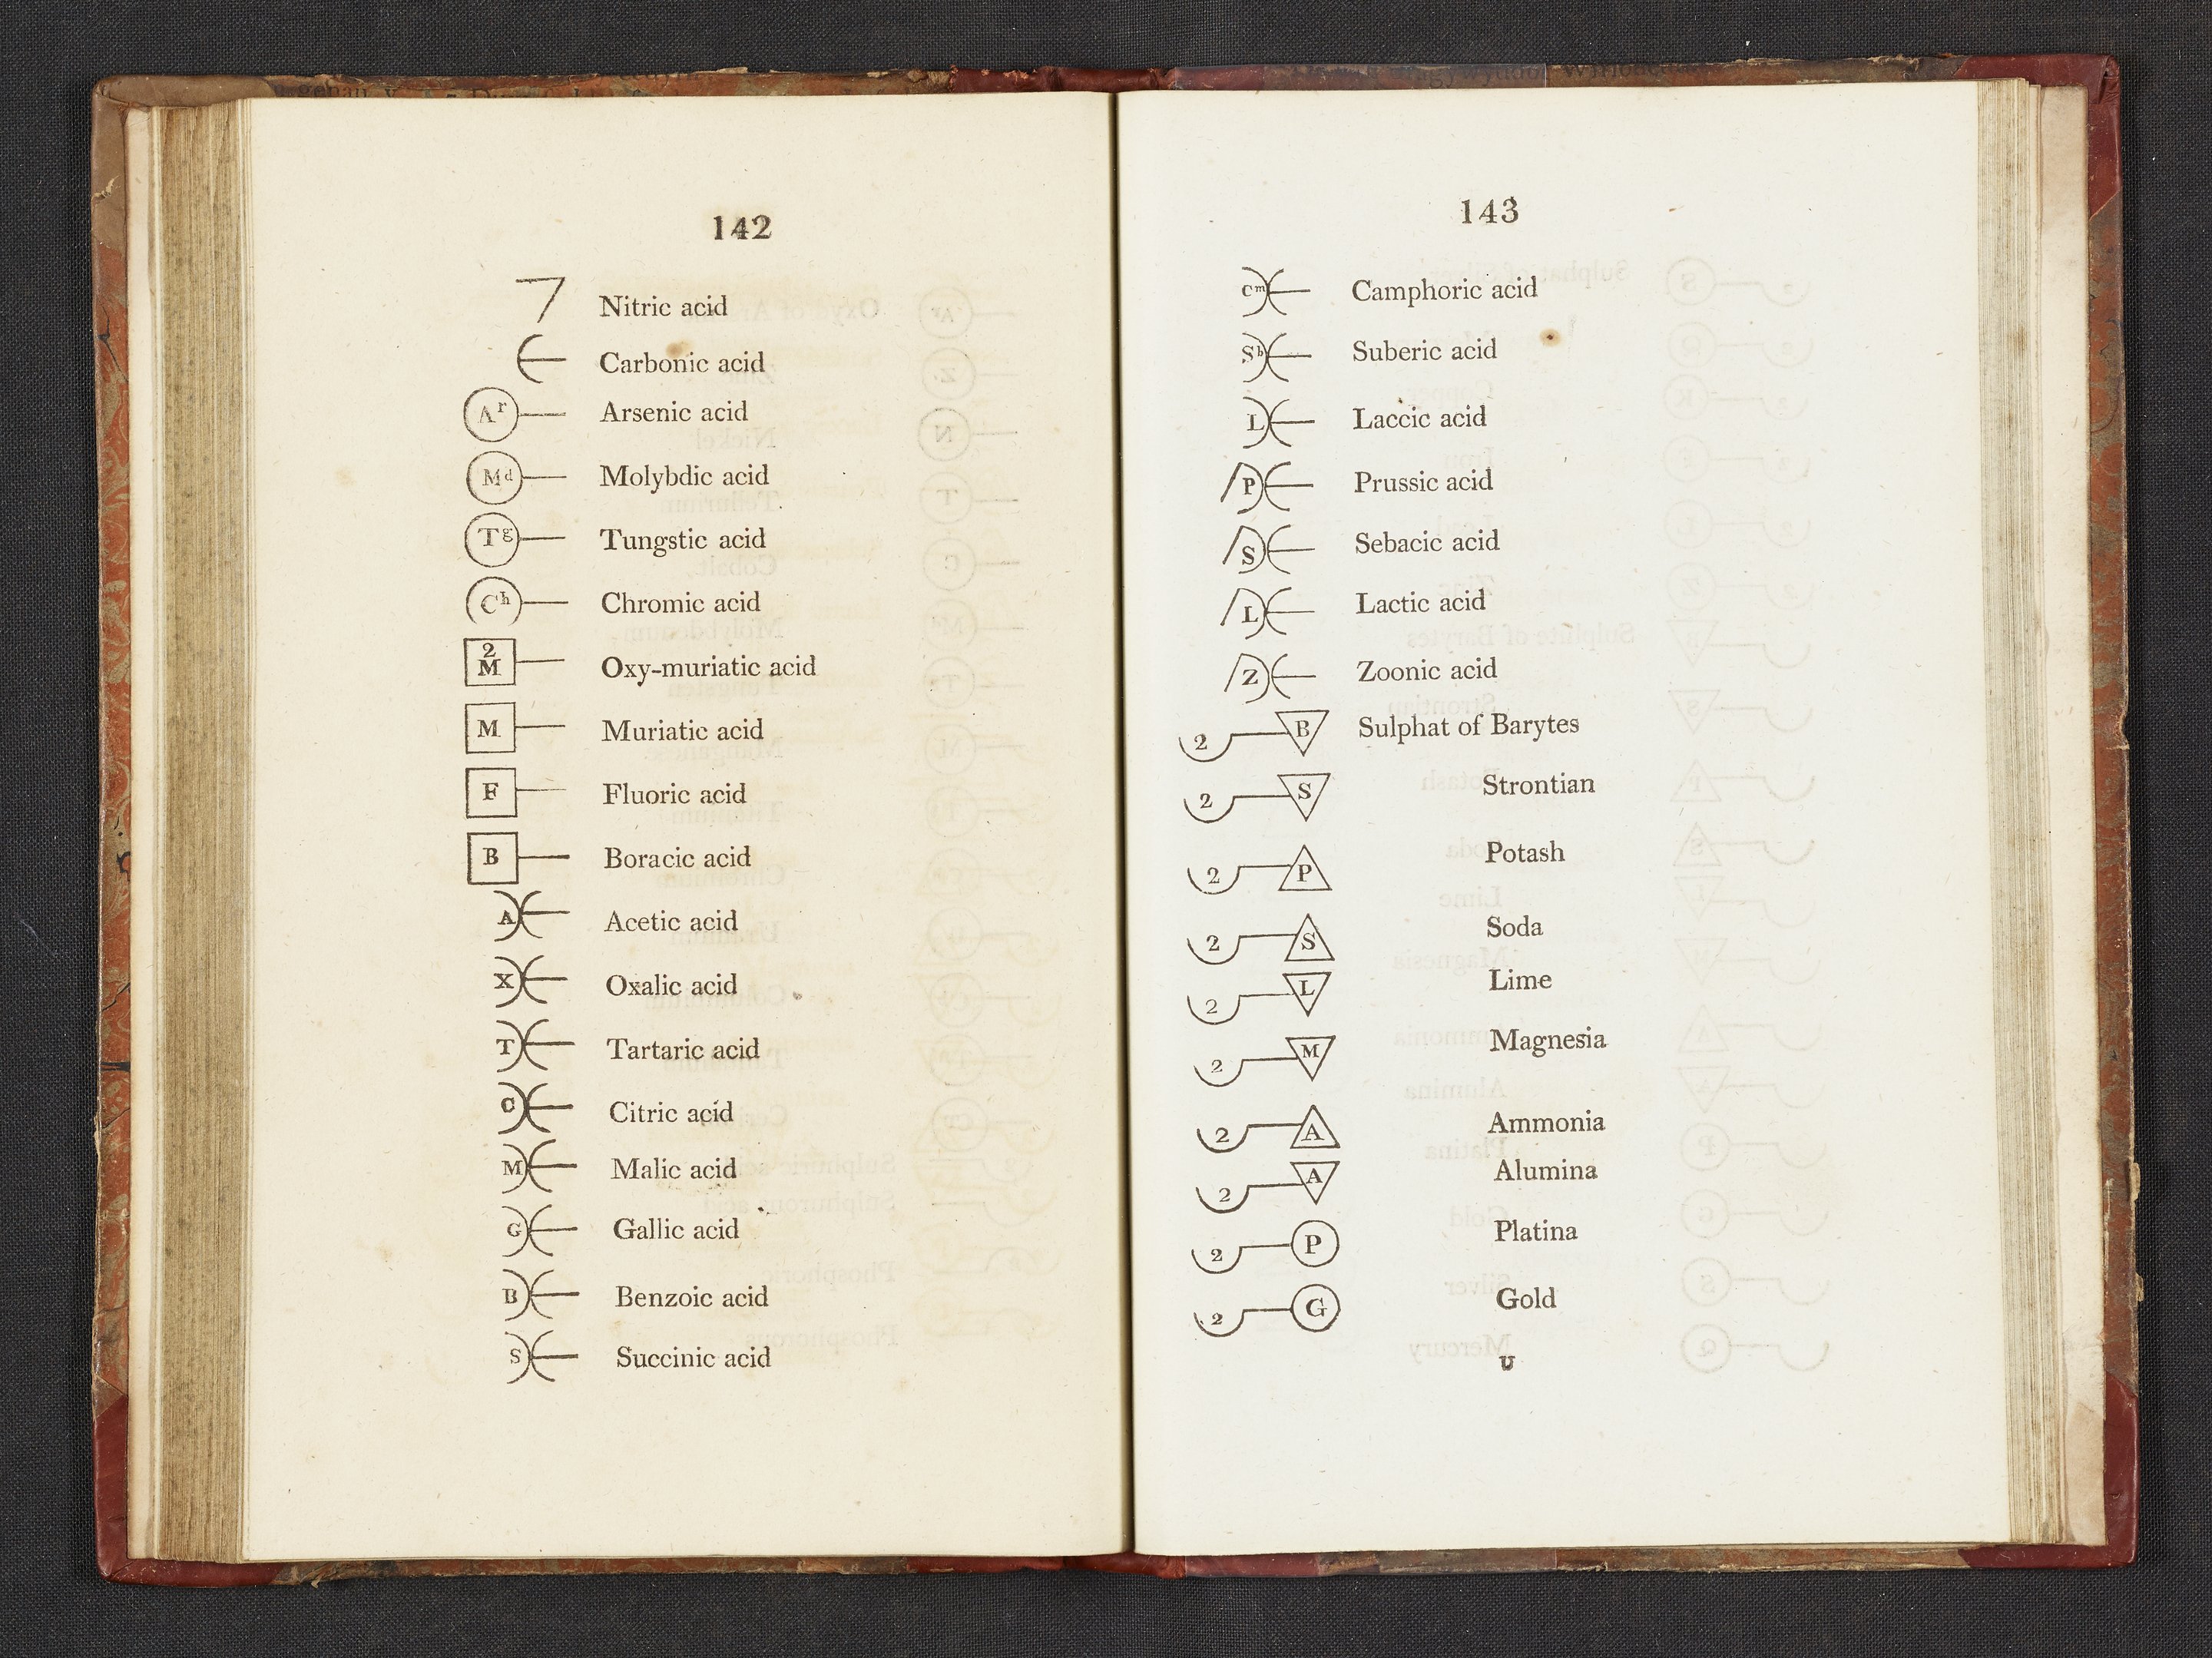 142
Nitric acid
Carbonic acid
Ar Arsenic acid
Md Molybdic acid
Tg Tungstic acid
Ch Chromic acid
2 M Oxy-muriatic acid
M Muriatic acid
F Fluoric acid
B Boracic acid
A Acetic acid
X Oxalic acid
T Tartaric acid
C Citric acid
M Malic acid
G Gallic acid
B Benzoic acid
S Succinic acid
143
Cm Camphoric acid
Sb Suberic acid
L Laccic acid
P Prussic acid
S Sebacic acid
L Lactic acid
Z Zoonic acid
2 B Sulphat of Barytes
2 S Strontian
2 P Potash
2 S Soda
2 L Lime
2 M Magnesia
2 A Ammonia
2 A Alumina
2 P Platina
2 G Gold
U